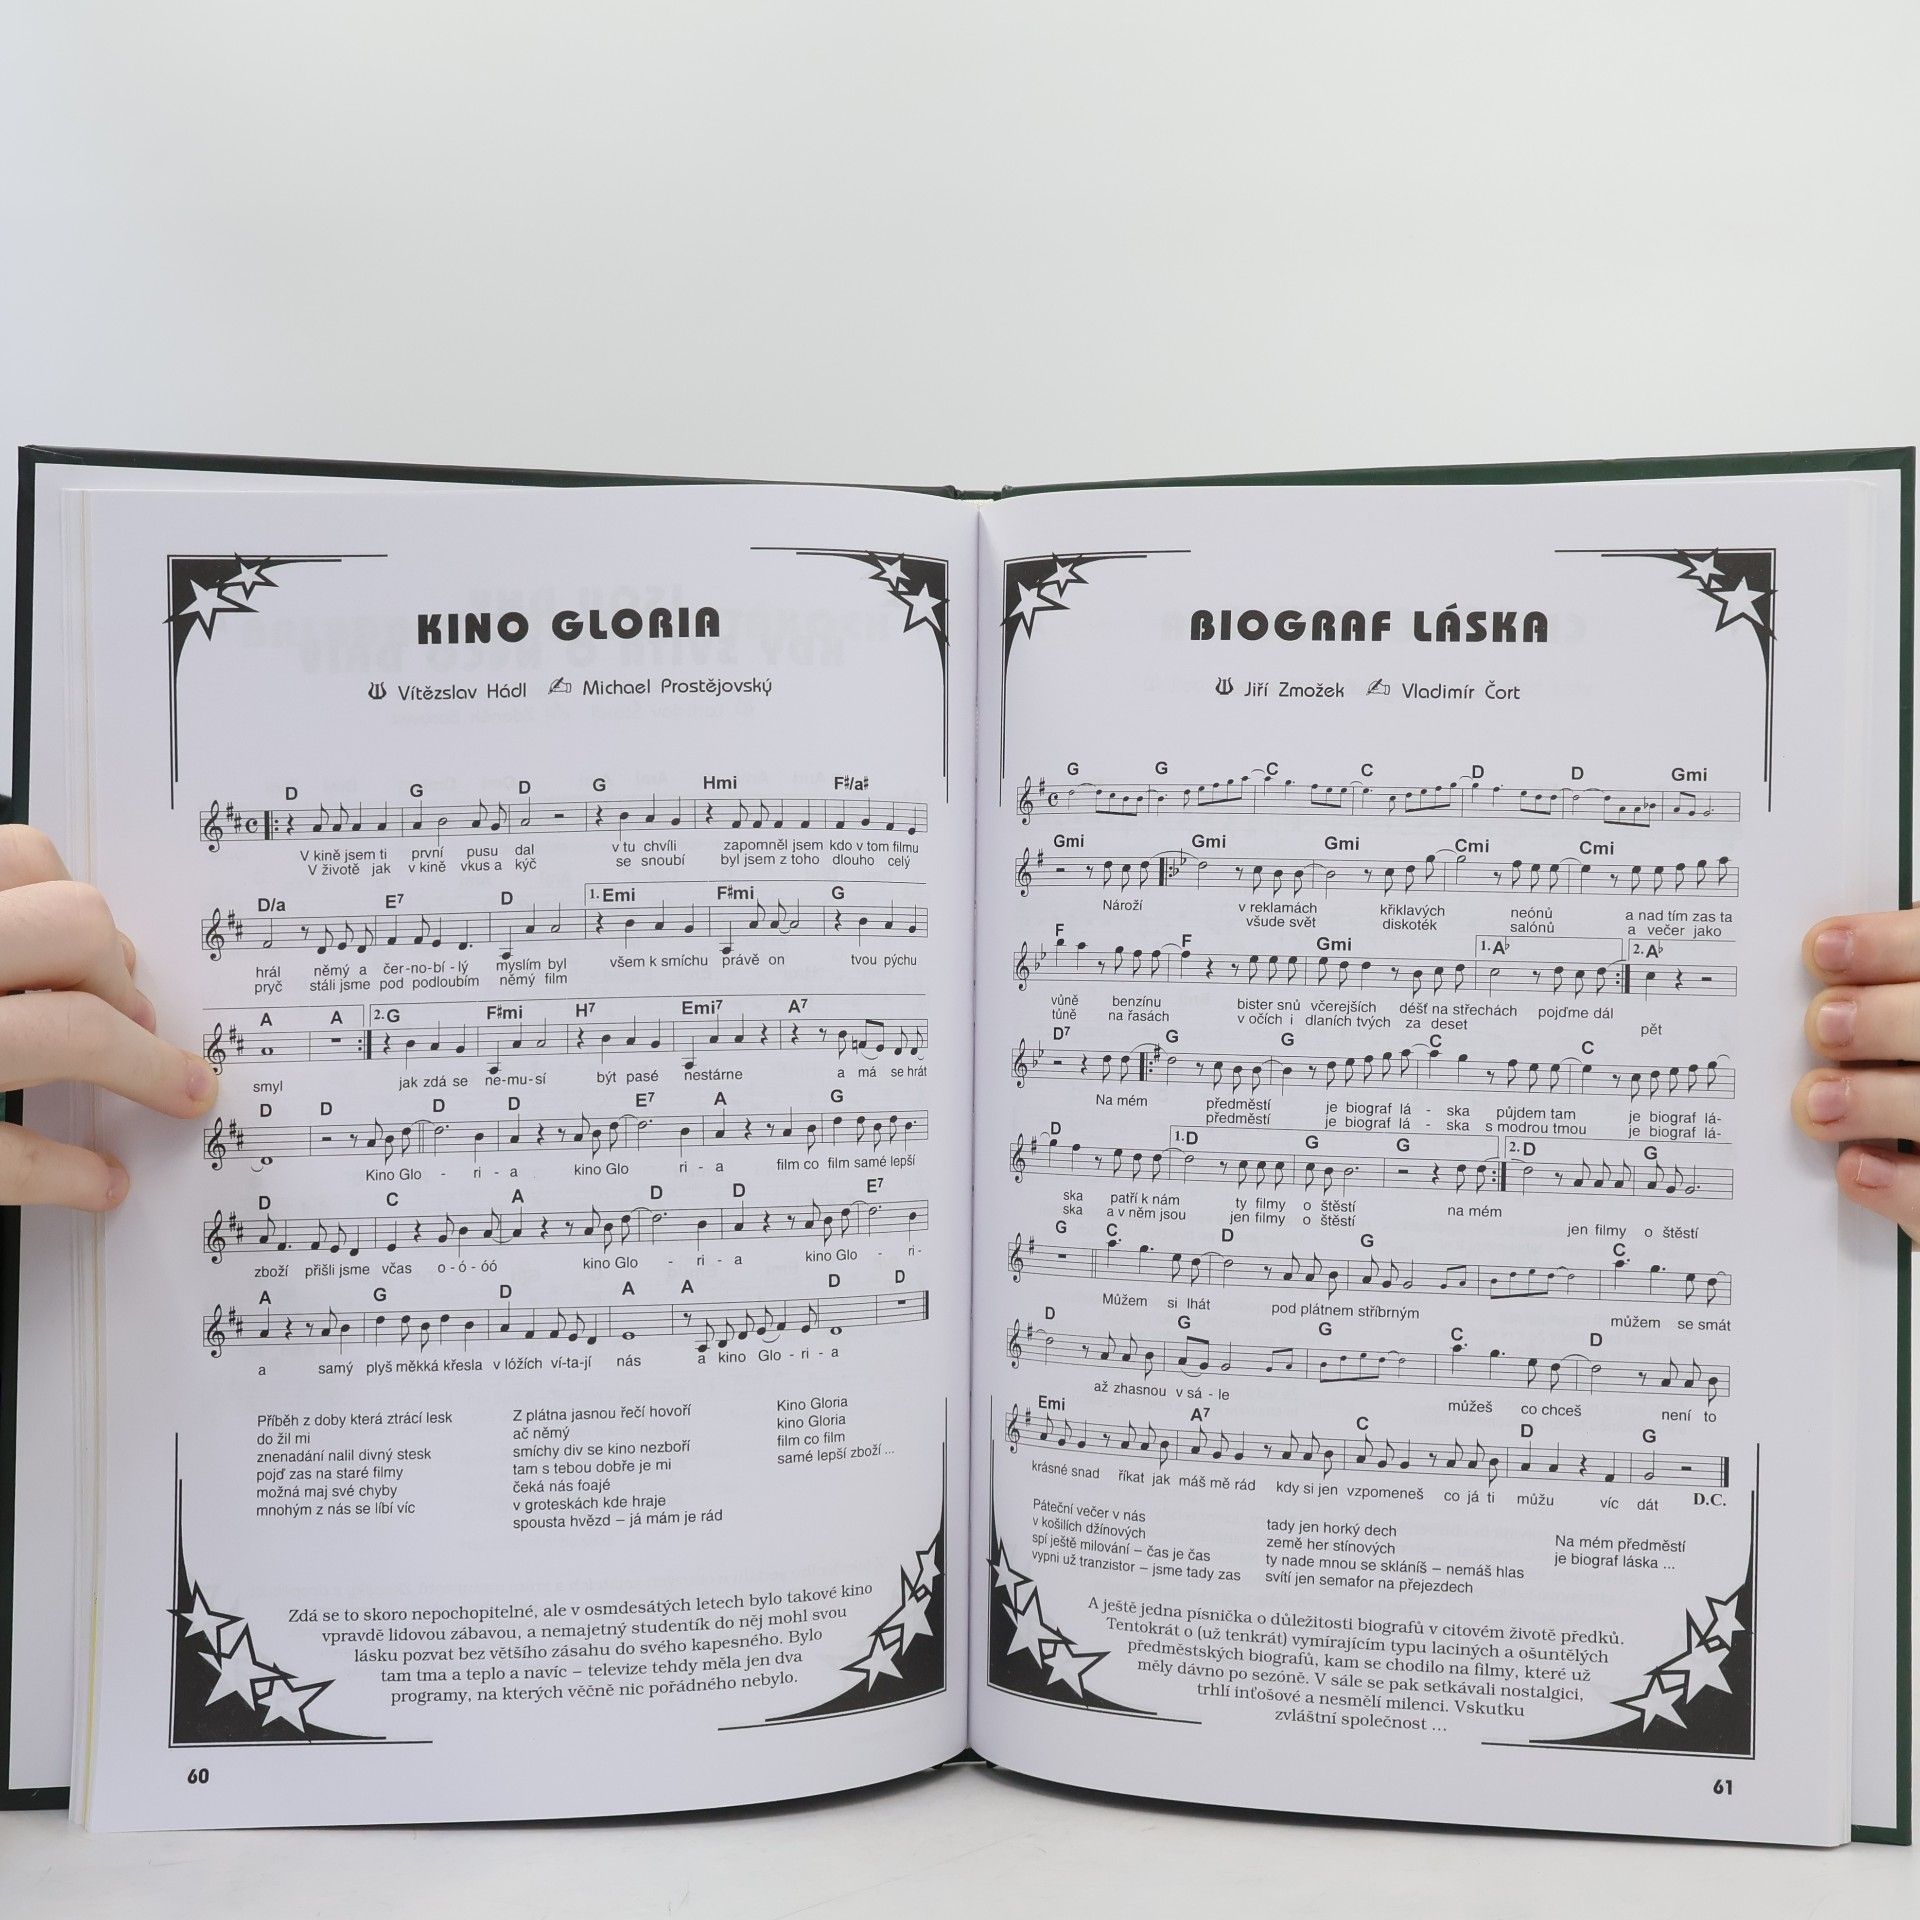 KINO GLORIA
Vítězslav Hádl Michael Prostějovský
D G D G Hmi F♯/a♯
V kině jsem ti první pusu dal v tu chvíli zapomněl jsem kdo v tom filmu
V životě jak v kině vkus a kýč se snoubí byl jsem z toho dlouho celý
D/a E7 D 1. Emi F♯mi G
hrál němý a čer-no-bí-lý myslím byl všem k smíchu právě on tvou pýchu
pryč stáli jsme pod podloubím němý film
A A 2. G F♯mi H7 Emi7 A7
smyl jak zdá se ne-mu-sí být pasé nestárne a má se hrát
D D D D E7 A G
Kino Glo - ri - a kino Glo ri - a film co film samé lepší
D C A D D E7
zboží přišli jsme včas o-ó-óó kino Glo - ri - a kino Glo - ri-
A G D A A D D
a samý plyš měkká křesla v lóžích ví-ta-jí nás a kino Glo - ri - a
Příběh z doby která ztrácí lesk
do žil mi
znenadání nalil divný stesk
pojď zas na staré filmy
možná maj své chyby
mnohým z nás se líbí víc
Z plátna jasnou řečí hovoří
ač němý
smíchy div se kino nezboří
tam s tebou dobře je mi
čeká nás foajé
v groteskách kde hraje
spousta hvězd – já mám je rád
Kino Gloria
kino Gloria
film co film
samé lepší zboží ...
Zdá se to skoro nepochopitelné, ale v osmdesátých letech bylo takové kino
vpravdě lidovou zábavou, a nemajetný studentík do něj mohl svou
lásku pozvat bez většího zásahu do svého kapesného. Bylo
tam tma a teplo a navíc – televize tehdy měla jen dva
programy, na kterých věčně nic pořádného nebylo.
60
BIOGRAF LÁSKA
Jiří Zmožek Vladimír Čort
G G C C D D Gmi
Gmi Gmi Gmi Cmi Cmi
Nároží v reklamách křiklavých neónů a nad tím zas ta
všude svět diskoték salónů a večer jako
F F Gmi 1. A♭ 2. A♭
vůně benzínu bister snů včerejších déšť na střechách pojďme dál
tůně na řasách v očích i dlaních tvých za deset pět
D7 G G C C
Na mém předměstí je biograf lá - ska půjdem tam je biograf lá-
předměstí je biograf lá - ska s modrou tmou je biograf lá-
D 1. D G G 2. D G
ska patří k nám ty filmy o štěstí na mém
ska a v něm jsou jen filmy o štěstí jen filmy o štěstí
G C D G C
Můžem si lhát pod plátnem stříbrným můžem se smát
D G G C D
až zhasnou v sá - le můžeš co chceš není to
Emi A7 C D G
krásné snad říkat jak máš mě rád kdy si jen vzpomeneš co já ti můžu víc dát D.C.
Páteční večer v nás
v košilích džínových
spí ještě milování – čas je čas
vypni už tranzistor – jsme tady zas
tady jen horký dech
země her stínových
ty nade mnou se skláníš – nemáš hlas
svítí jen semafor na přejezdech
Na mém předměstí
je biograf láska ...
A ještě jedna písnička o důležitosti biografů v citovém životě předků.
Tentokrát o (už tenkrát) vymírajícím typu laciných a ošuntělých
předměstských biografů, kam se chodilo na filmy, které už
měly dávno po sezóně. V sále se pak setkávali nostalgici,
trhlí inťošové a nesmělí milenci. Vskutku
zvláštní společnost ...
61